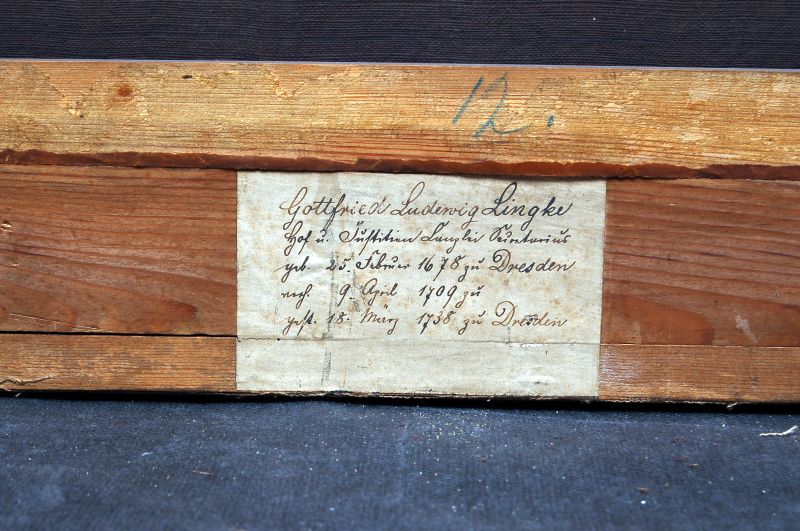 12.
Gottfried Ludewig Lingke
Hof u. Justitien Canzlei Secretarius
geb. 25. Februar 1678 zu Dresden
verh. 9. April 1709 zu
gest. 18. März 1738 zu Dresden